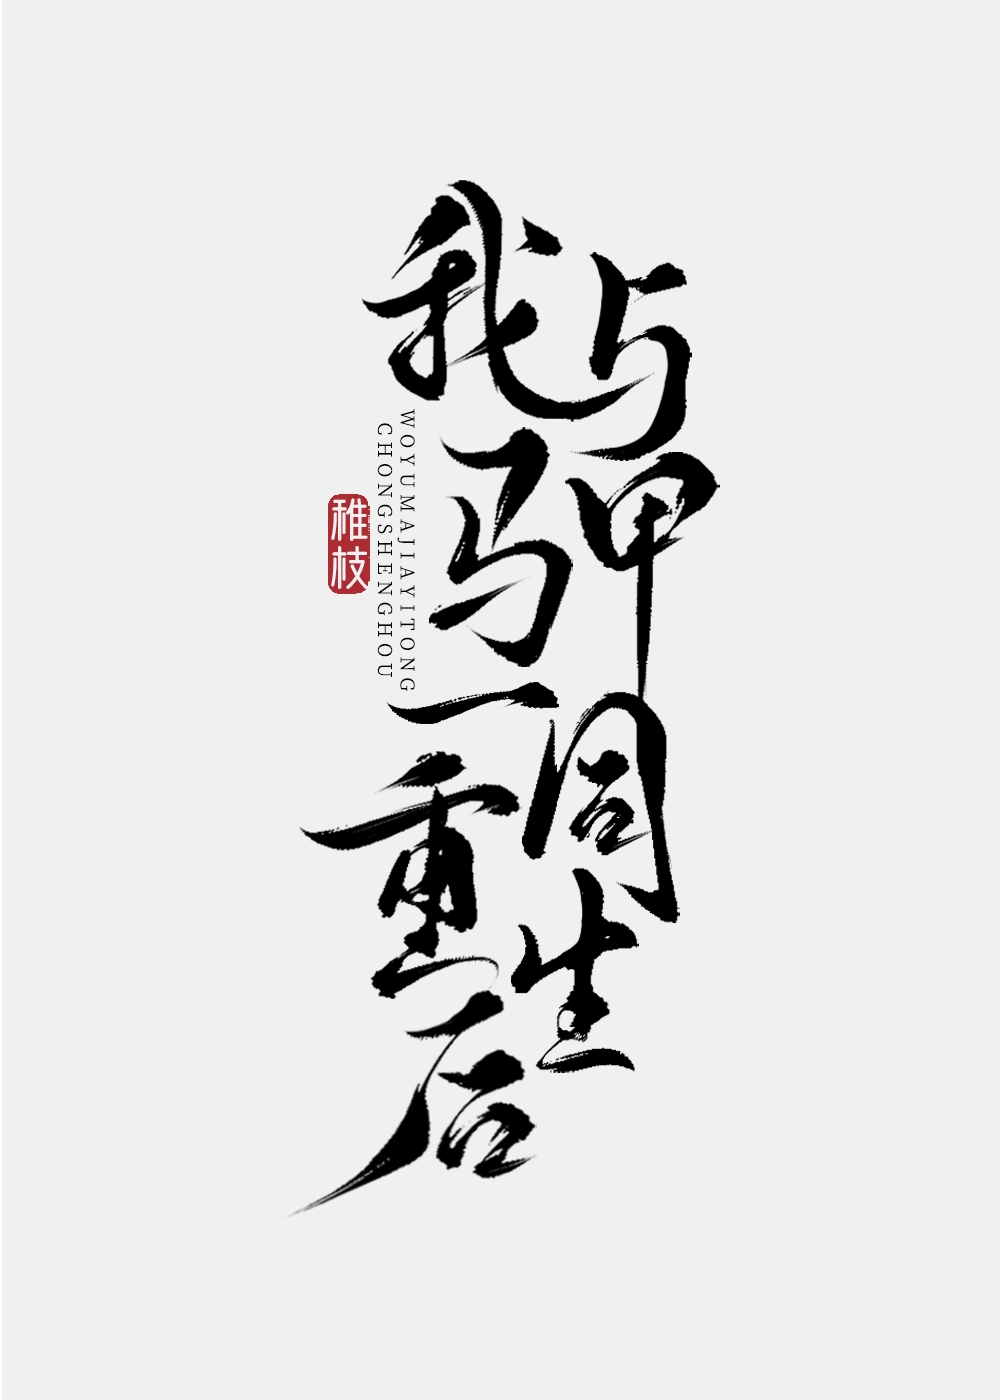 我与
马甲
一同
重生
后
WOYUMAJIAYITONG
CHONGSHENGHOU
稚枝